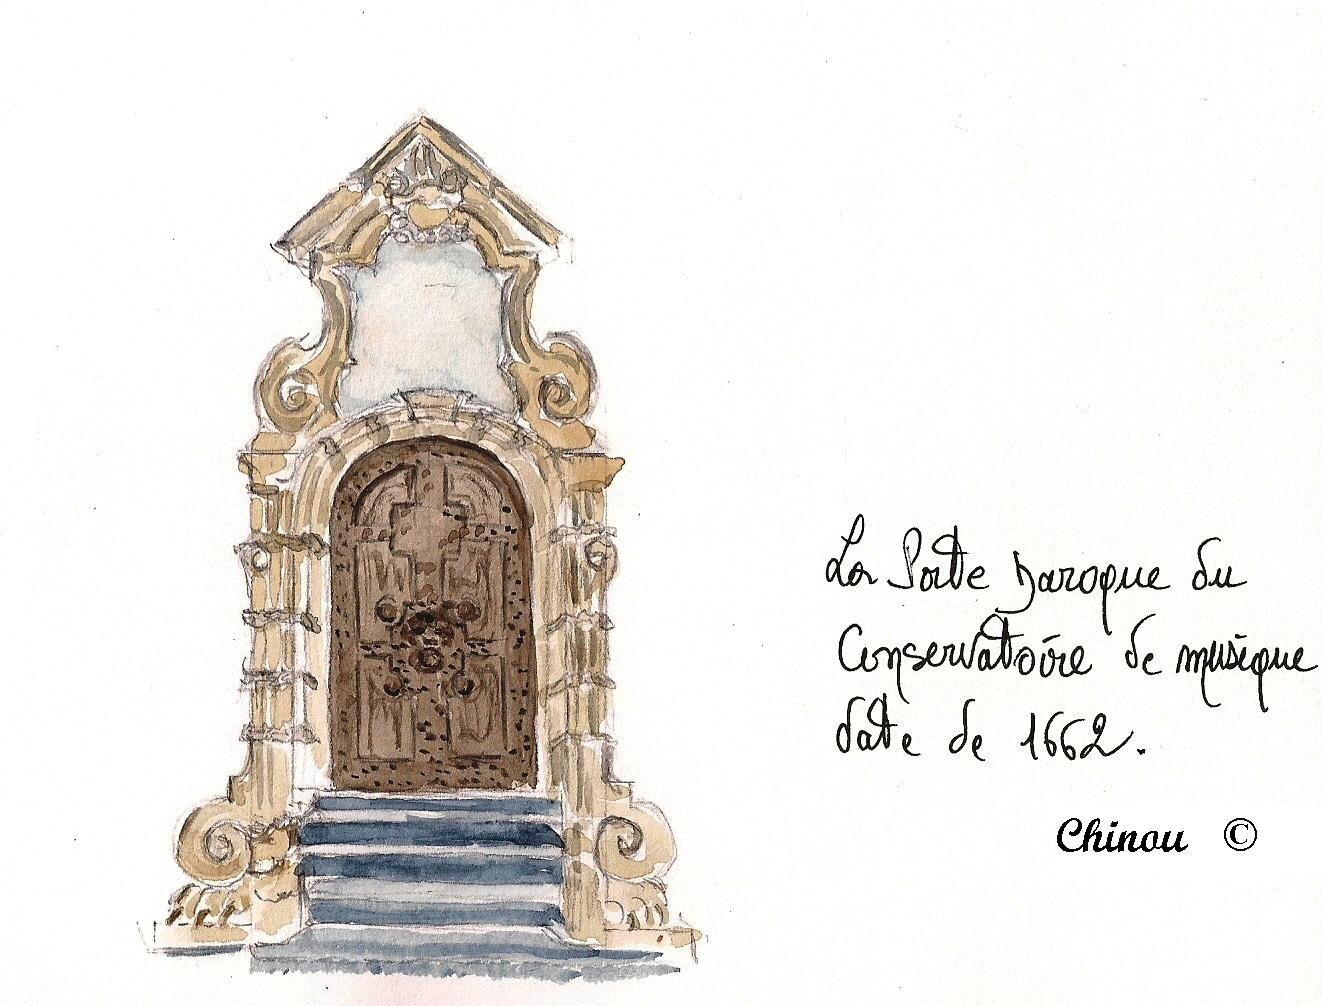 La Porte Baroque du
Conservatoire de musique
date de 1662.
Chinou ©